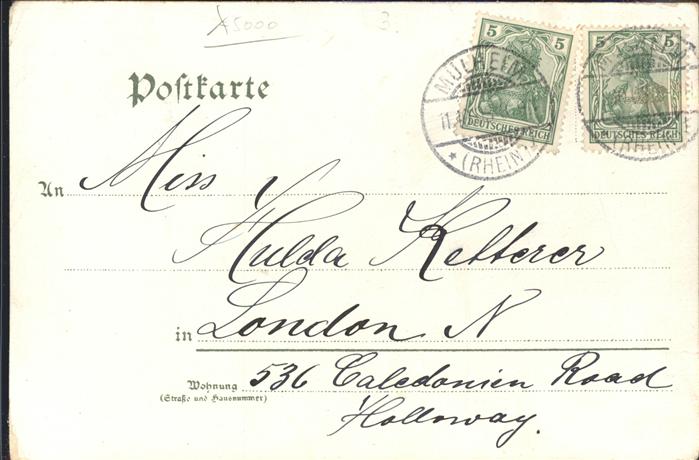 x 5000
3
5 5
DEUTSCHES REICH
5 5
DEUTSCHES REICH
MÜLHEIM
(RHEIN)
(RHEIN)
Postkarte
An Miss
Hulda Ketterer
in London N
Wohnung 536 Caledonien Road
(Straße und Hausnummer)
Holloway.